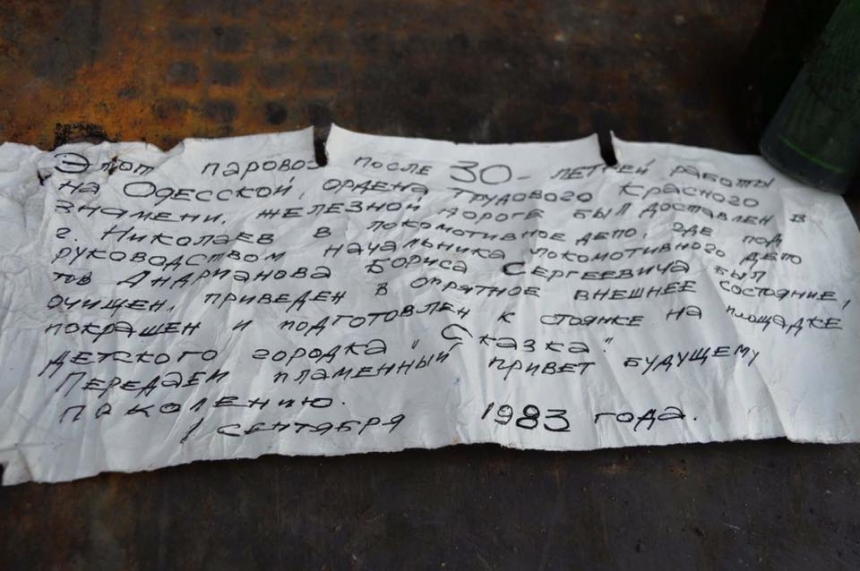 Этот паровоз после 30-летней работы
на Одесской, ордена трудового Красного
знамени, железной дороге был доставлен в
г. Николаев в локомотивное депо, где под
руководством начальника локомотивного депо
тов Андрианова Бориса Сергеевича был
очищен, приведен в опрятное внешнее состояние,
покрашен и подготовлен к стоянке на площадке
детского городка "Сказка".
Передаём пламенный привет будущему
паколению.
1 сентября 1983 года.